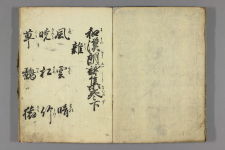 和漢朗詠集巻下
雑
風 雲 晴
暁 松 竹
草 鶴 猿